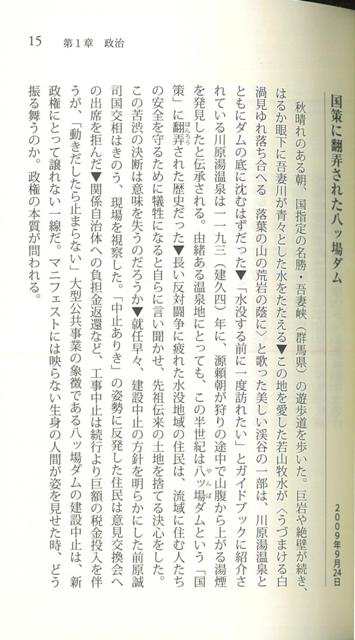 15　第１章　政治
国策に翻弄された八ッ場ダム
２００９年９月24日
秋晴れのある朝、国指定の名勝・吾妻峡（群馬県）の遊歩道を歩いた。巨岩や絶壁が続き、
はるか眼下に吾妻川が青々とした水をたたえる▼この地を愛した若山牧水が〈うづまける白
渦見ゆれ落ち合へる　落葉の山の荒岩の蔭に〉と歌った美しい渓谷の一部は、川原湯温泉と
ともにダムの底に沈むはずだった▼「水没する前に一度訪れたい」とガイドブックに紹介さ
れている川原湯温泉は一一九三（建久四）年に、源頼朝が狩りの途中で山腹から上がる湯煙
を発見したと伝承される。由緒ある温泉地にとっても、この半世紀は八ッ場ダムという「国
策」に翻弄された歴史だった▼長い反対闘争に疲れた水没地域の住民は、流域に住む人たち
の安全を守るために犠牲になると自らに言い聞かせ、先祖伝来の土地を捨てる決心をした。
この苦渋の決断は意味を失うのだろうか▼就任早々、建設中止の方針を明らかにした前原誠
司国交相はきのう、現場を視察した。「中止ありき」の姿勢に反発した住民は意見交換会へ
の出席を拒んだ▼関係自治体への負担金返還など、工事中止は続行より巨額の税金投入を伴
うが、「動きだしたら止まらない」大型公共事業の象徴である八ッ場ダムの建設中止は、新
政権にとって譲れない一線だ。マニフェストには映らない生身の人間が姿を見せた時、どう
振る舞うのか。政権の本質が問われる。